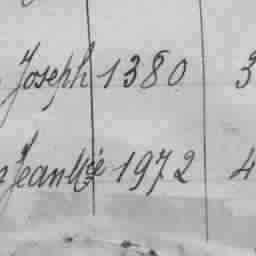 Joseph 1380 3
Jean Mcé 1972 4